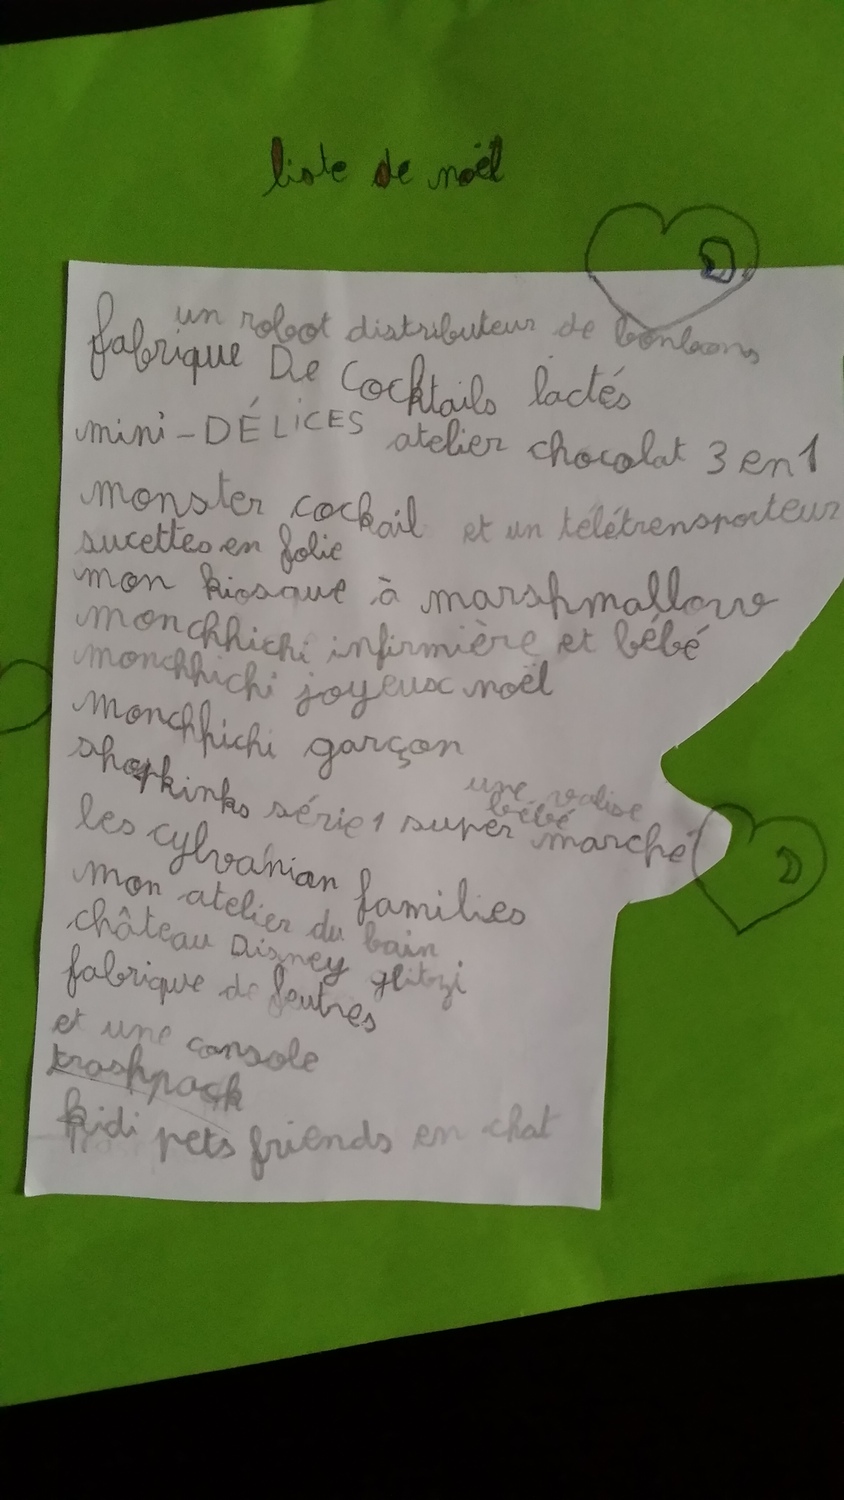 liste de noël
un robot distributeur de bonbons
fabrique De Cocktails lactés
mini-DÉLICES atelier chocolat 3 en 1
monster cockail et un télétrensporteur
sucettes en folie
mon kiosque à marshmallow
monchhichi infirmière et bébé
monchhichi joyeux noël
monchhichi garçon
une valise
bébé
shopkinks série 1 super marché
les cylvanian families
mon atelier du bain
château Disney glitzi
fabrique de feutres
et une console
trashpack
kidi pets friends en chat